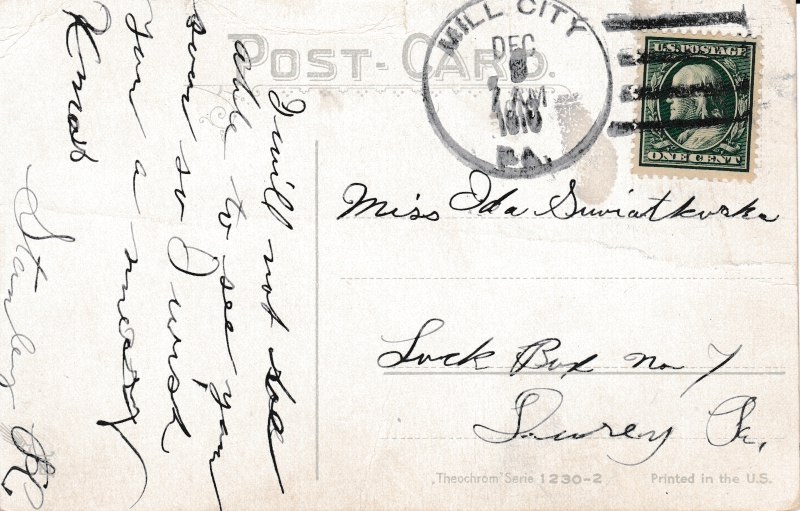 POST-CARD.
MILL CITY
DEC
PA.
U.S. POSTAGE
ONE CENT
I will not
able to see you
soon so I wish
you a merry
Kmas
Stanley
Miss Ida Swiatkoska
Lock Box No 7
Pa.
"Theochrom" Serie 1230-2
Printed in the U.S.